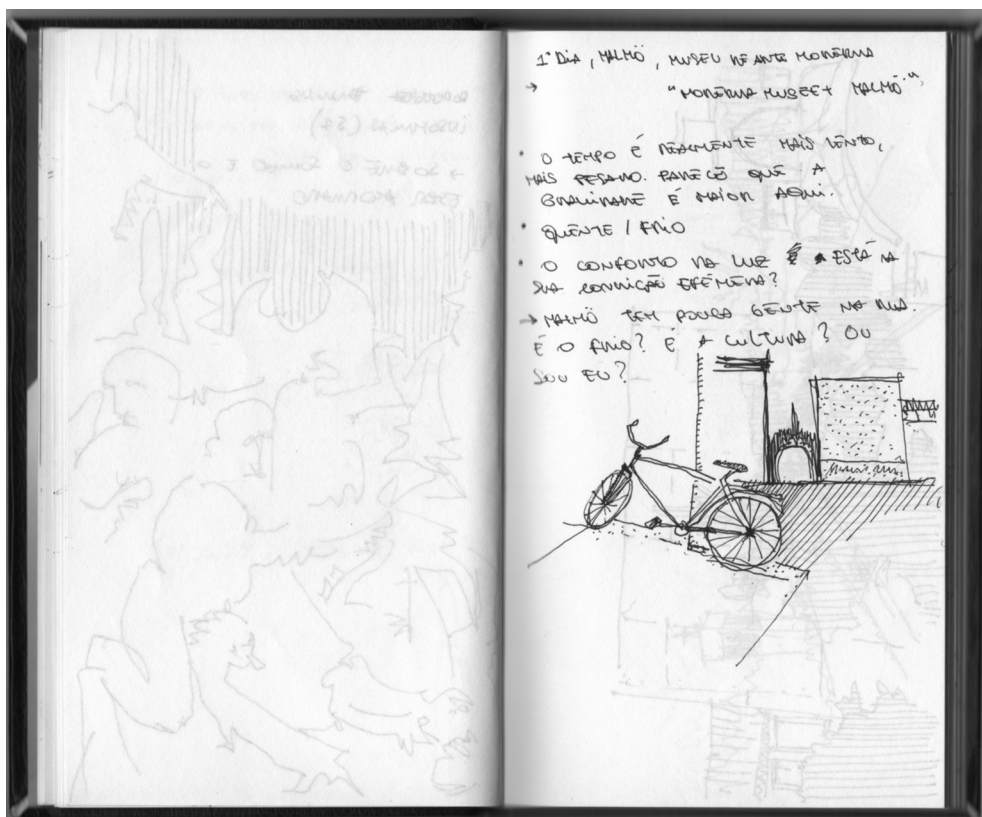 1º DIA, MALMÖ, MUSEU DE ARTE MODERNA
→ "MODERNA MUSEET MALMÖ",
• O TEMPO É REALMENTE MAIS LENTO,
MAIS PESADO. PARECE QUE A
GRAVIDADE É MAIOR AQUI.
• QUENTE / FRIO
• O CONFORTO DA LUZ ESTÁ NA
SUA CONDIÇÃO EFÉMERA?
→ MALMÖ TEM POUCA GENTE NA RUA.
É O FRIO? É A CULTURA? OU
SOU EU?